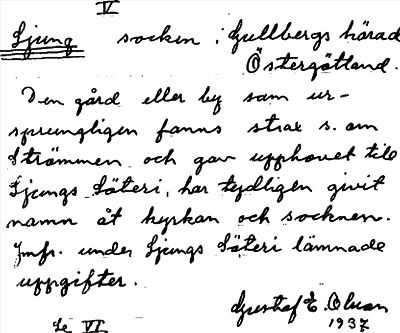 V
Ljung socken i Gullbergs härad
Östergötland.
Den gård eller by som ur-
sprungligen fanns strax s. om
Strömmen och gav upphovet till
Ljungs Säteri, har tydligen givit
namn åt kyrkan och socknen.
Jmfr. under Ljungs Säteri lämnade
uppgifter.
Gustaf E. Olsson
Se VI 1937